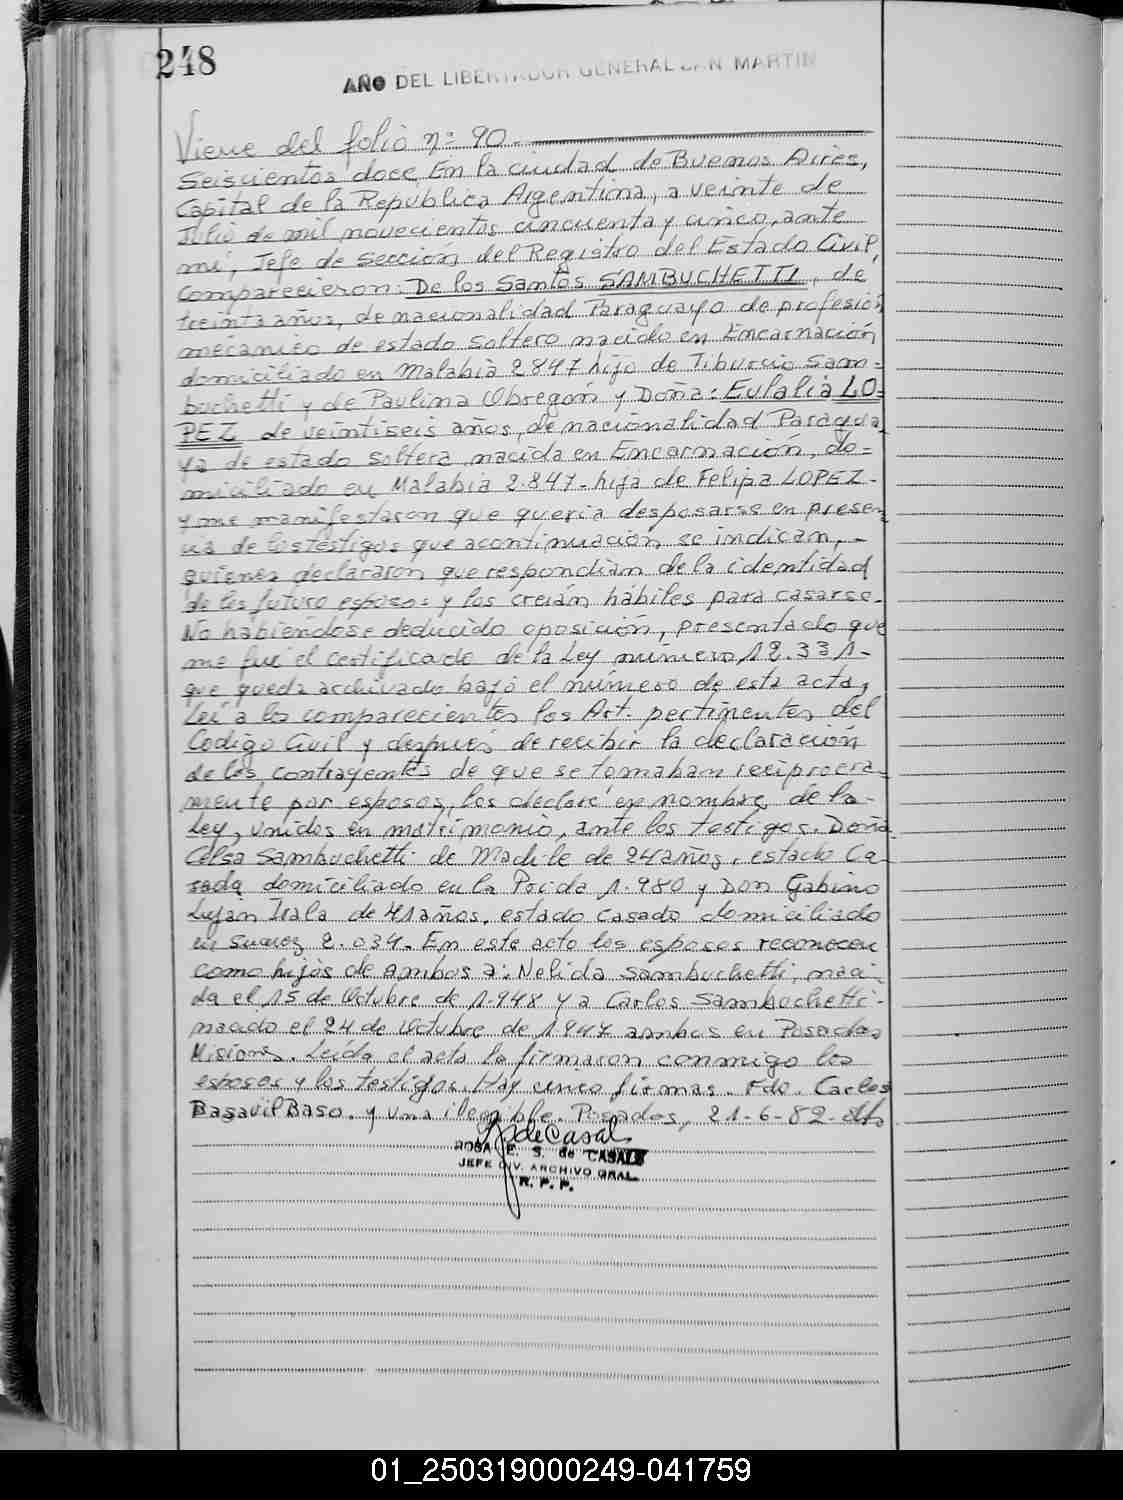 248
AÑO DEL LIBERTADOR GENERAL SAN MARTIN
Viene del folio nº 90.
Seiscientos doce, En la ciudad de Buenos Aires,
Capital de la República Argentina, a veinte de
Julio de mil novecientos cincuenta y cinco, ante
mí, Jefe de Sección del Registro del Estado Civil,
Comparecieron: De los Santos SAMBUCHETTI, de
treinta años, de nacionalidad Paraguayo de profesión
mecánico de estado soltero nacido en Encarnación
domiciliado en Malabia 2847 hijo de Tiburcio Sam=
buchetti y de Paulina Obregón y Doña: Eulalia LO=
PEZ de veintiseis años, de nacionalidad Paragua
ya de estado soltera, nacida en Encarnación, do=
miciliado en Malabia 2.847- hija de Felipa LOPEZ-
y me manifestaron que quería desposarse en presen
cia de los testigos que acontinuación se indican, -
quienes declararon que respondían de la identidad
de los futuro esposos y los creían hábiles para casarse.
No habiéndose deducido oposición, presentado que
me fué el certificado de la Ley número 12.331-
que queda archivado bajo el número de esta acta,
Leí a los comparecientes los Art. pertinentes del
Codigo Civil y después de recibir la declaración
de los contrayentes de que se tomaban reciproca
mente por esposos, los declaré en nombre de la-
Ley, unidos en matrimonio, ante los testigos. Doña
Celsa Sambuchetti de Madile de 24 años, estado Ca-
sada domiciliado en la Poida 1.980 y Don Gabino
Luján Irala de 41 años, estado casado domiciliado
en Suarez 2.034. En este acto los esposos reconocen
como hijos de ambos a: Nelida Sambuchetti, naci-
da el 15 de Octubre de 1.948 y a Carlos Sambuchetti-
nacido el 24 de Octubre de 1947 ambos en Posadas
Misiones. Leída el acta la firmaron conmigo los
esposos y los testigos. Hay cinco firmas. Fdo. Carlos
BasavilBaso. y una ilegible. Posadas, 21-6-82-
deCasal
ROSA E. S. de CASAL
JEFE DIV. ARCHIVO GRAL.
R. P. P.
01_250319000249-041759